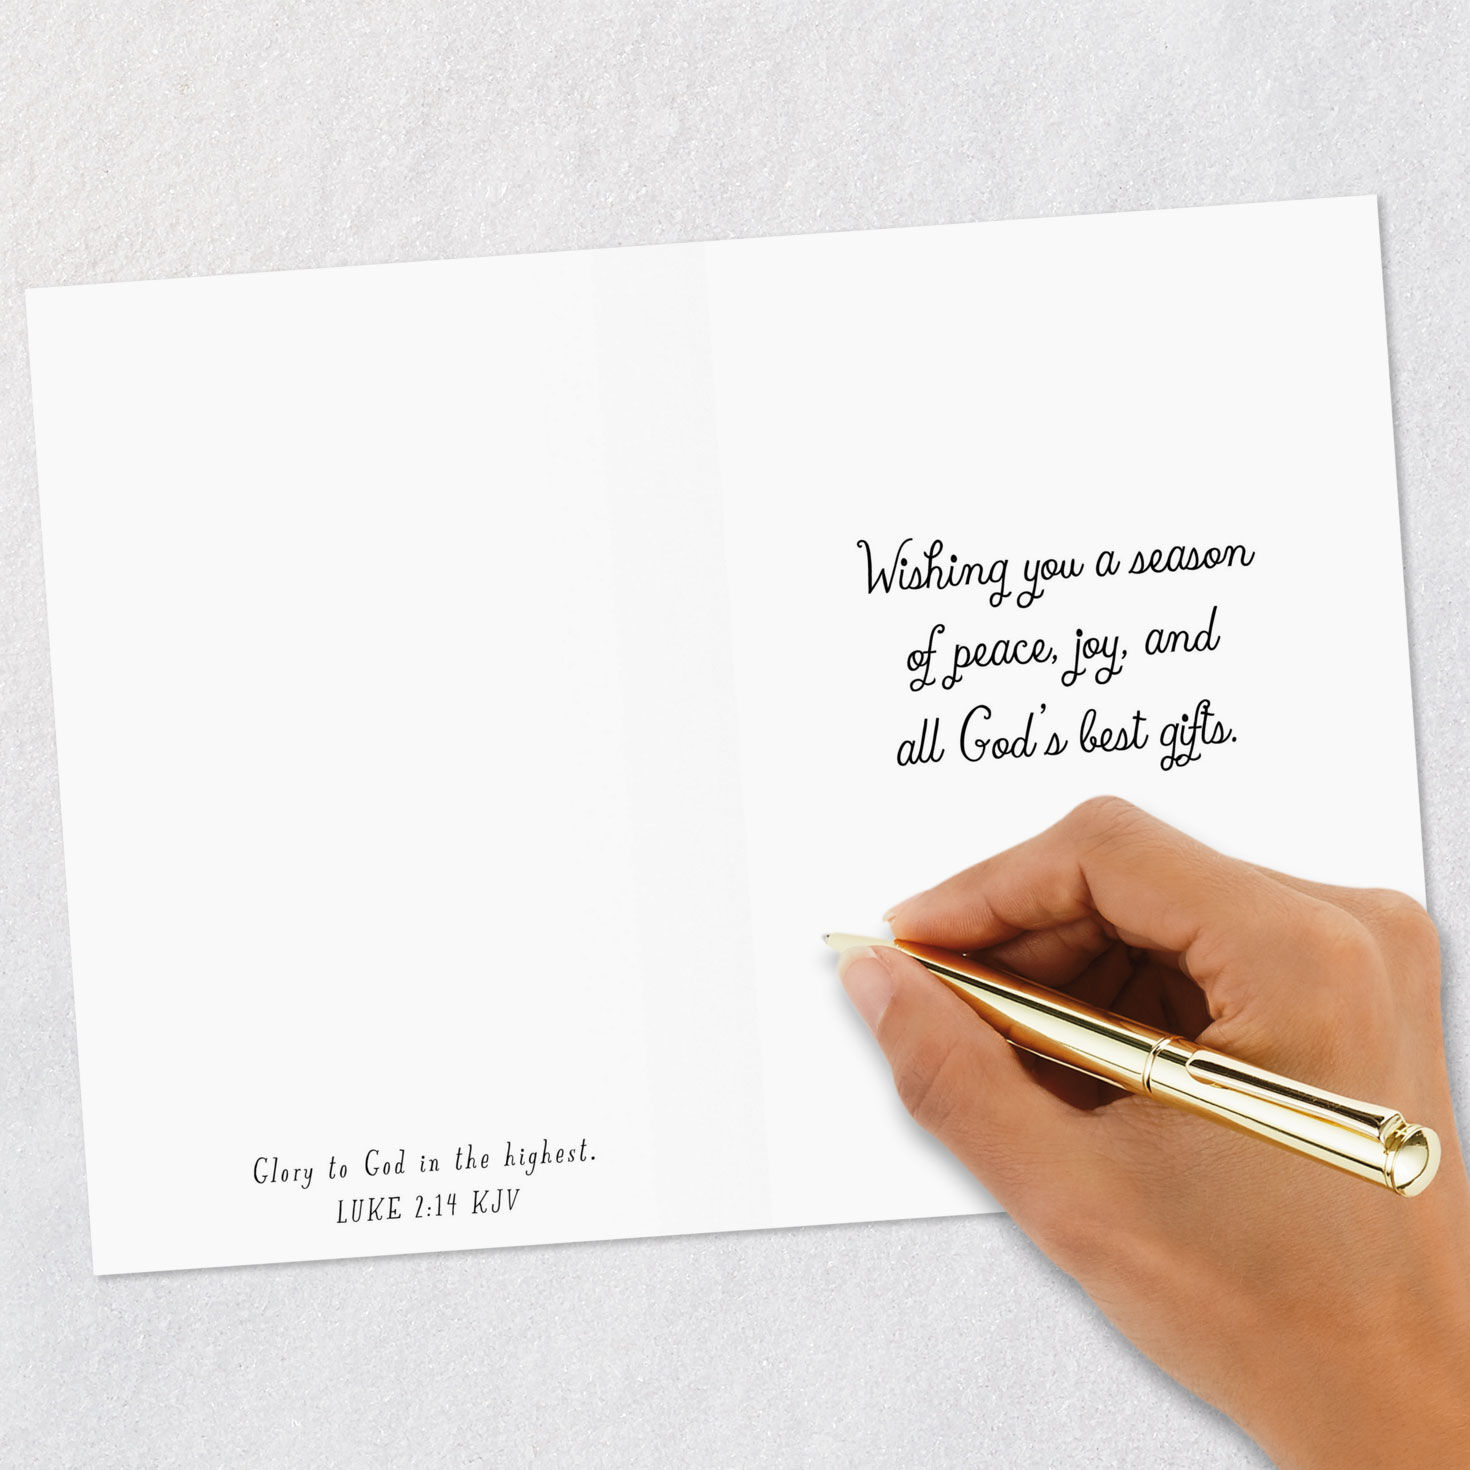 Glory to God in the highest.
LUKE 2:14 KJV
Wishing you a season
of peace, joy, and
all God's best gifts.